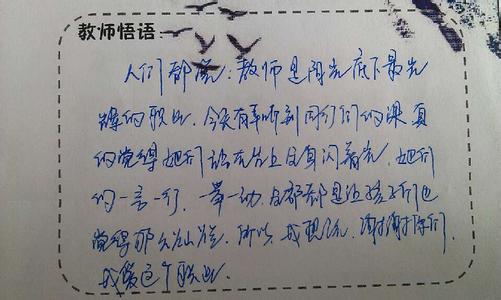 教师悟语：
人们都说：教师是阳光底下最光
辉的职业。今天有幸听到同行们的课真
的觉得她们站在台上自身闪着光，她们
的一言一行，举一动，都是让孩子们也
觉得那么。所以，我 谢谢你们，
我爱这个职业。